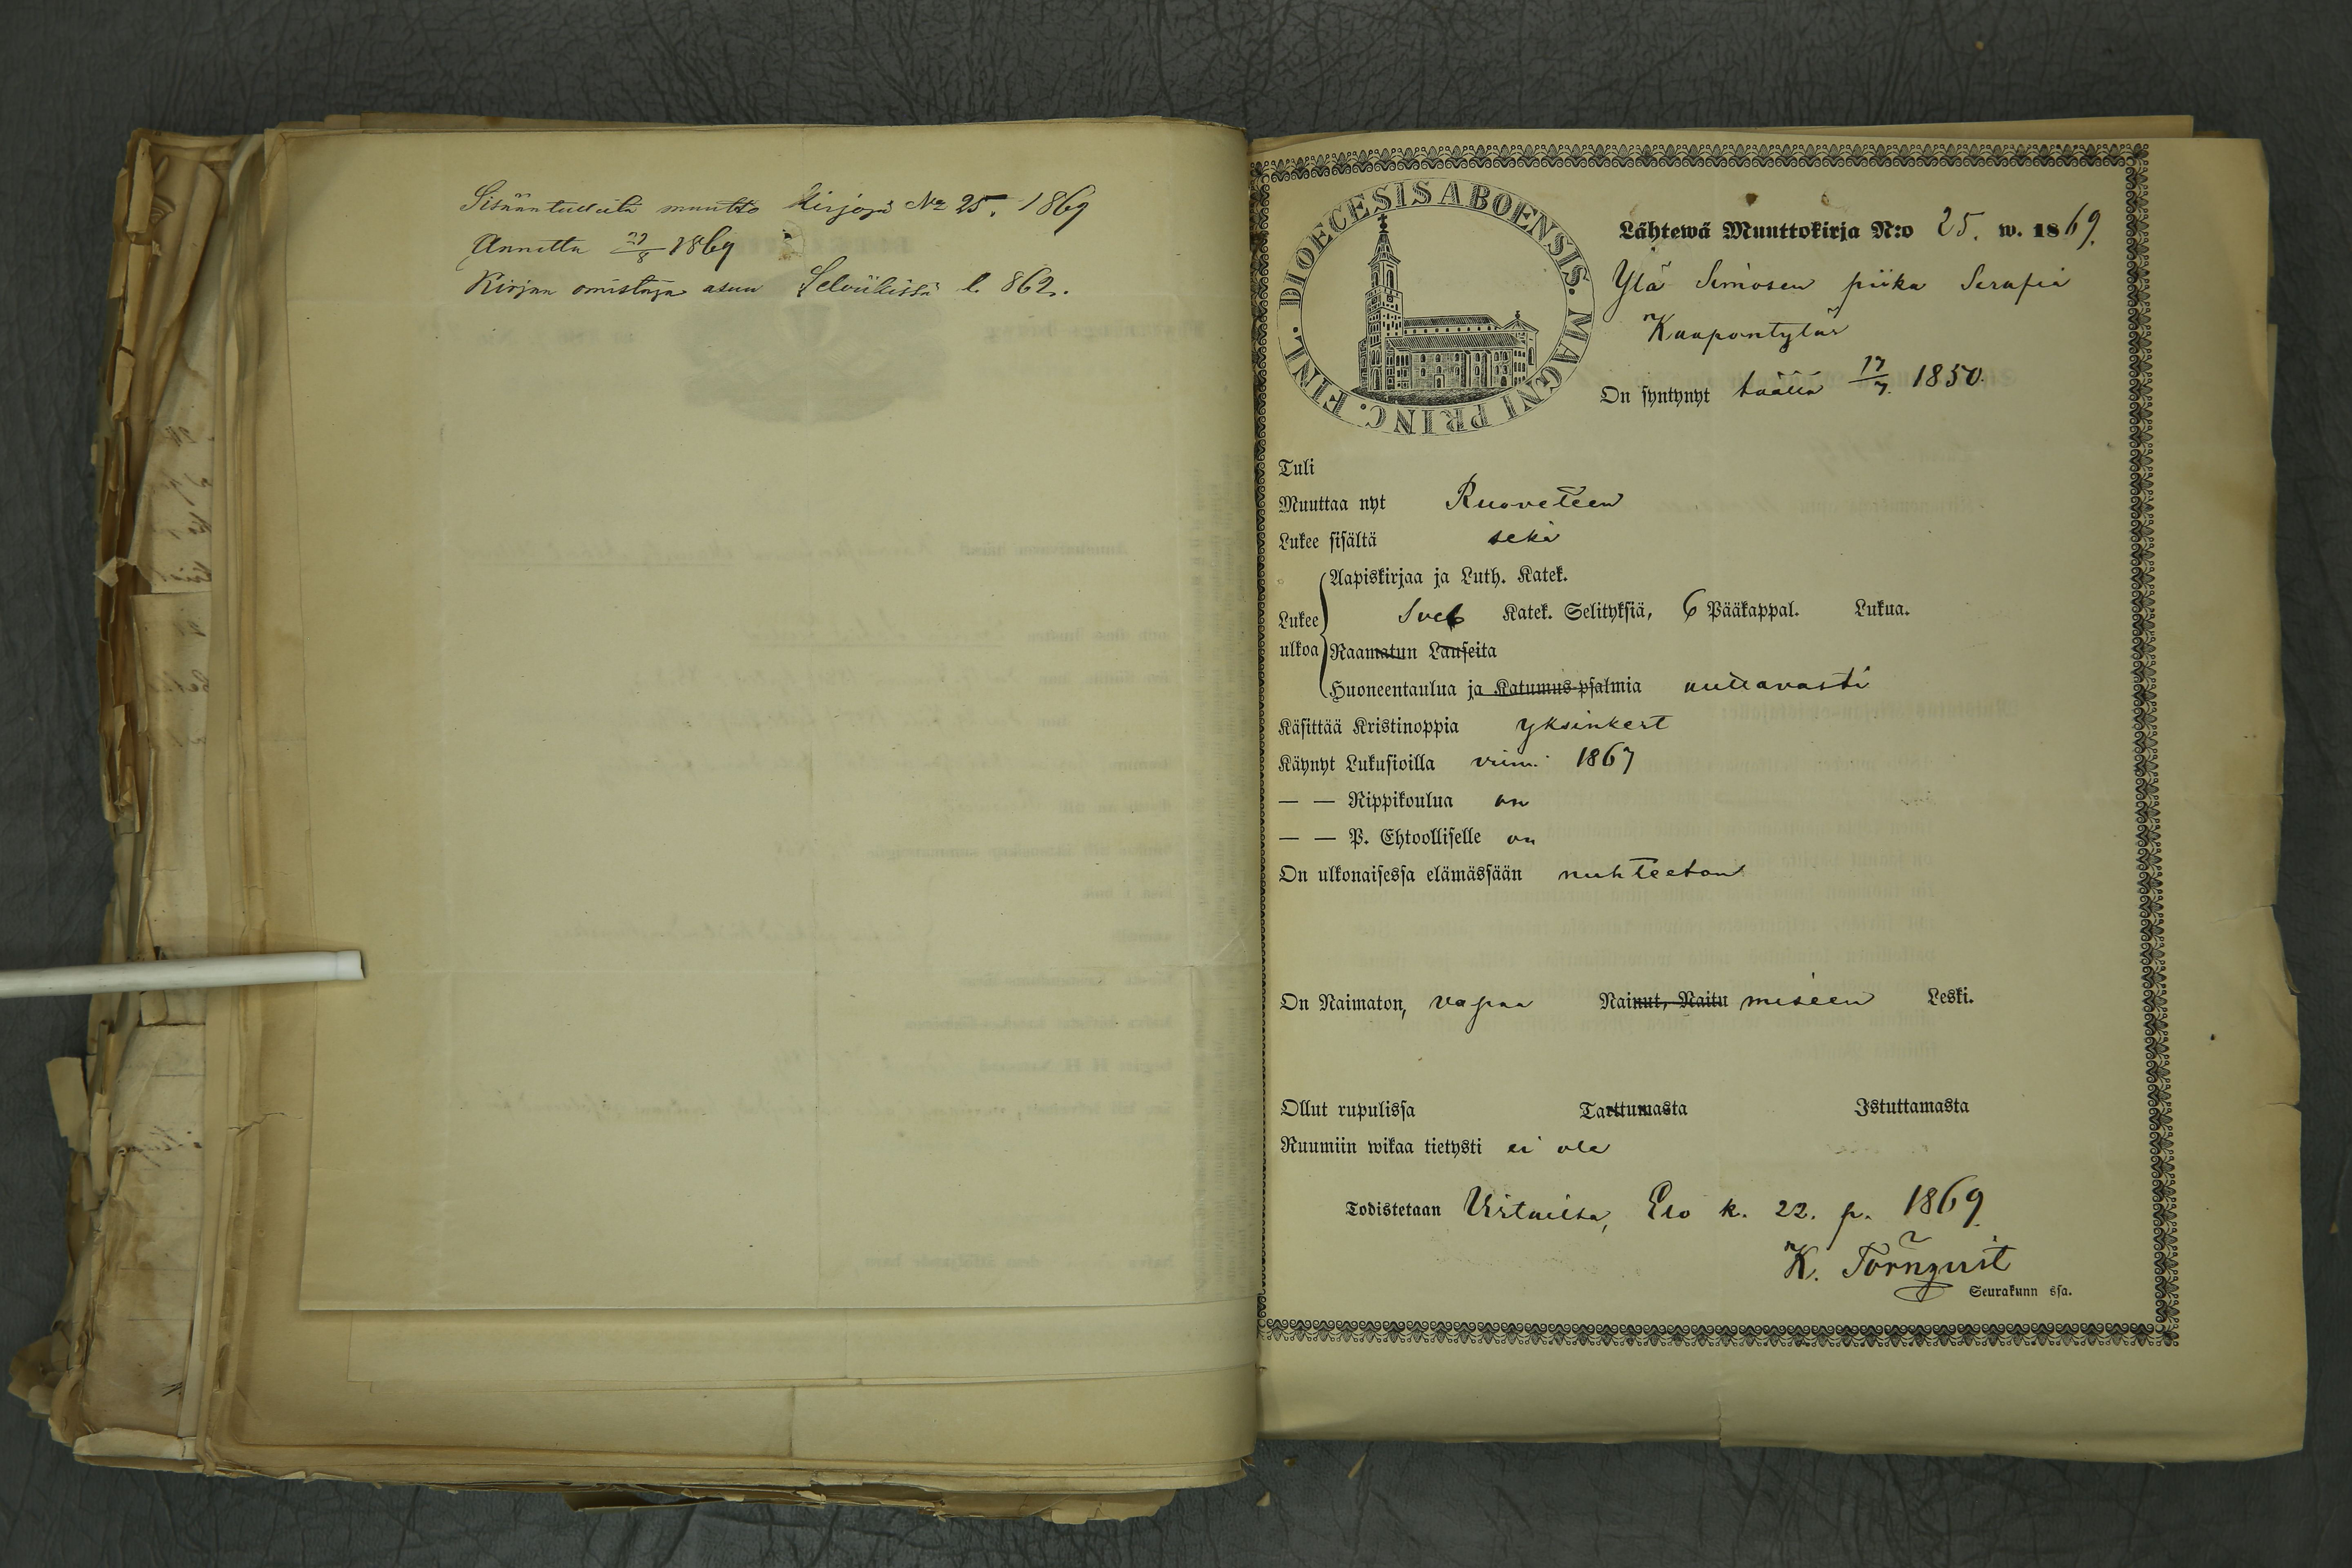 Sisääntulleita muutto kirjoja No 25. 1869
Annettu 22/8 1869
Kirjan omistaja asuu l. 862.
DIOECESIS ABOENSIS. MAGNI PRINC. FINL.
Lähtewä Muuttokirja N:o 25. w. 1869.
Ylä Simosen piika Serafia
Kaapontytär
On syntynyt täällä 17/7. 1850.
Tuli
Muuttaa nyt Ruoveteen
Lukee sisältä sekä
Aapiskirjaa ja Luth. Katek.
Lukee Sveb Katek. Selityksiä, 6 Pääkappal. Lukua.
ulkoa Raamatun Lauseita
Huoneentaulua ja Katumus-psalmia auttavasti
Käsittää Kristinoppia yksinkert
Käynyt Lukusioilla viim. 1867
— — Rippikoulua on
— — P. Ehtoolliselle on
On ulkonaisessa elämässään nuhteeton
On Naimaton, vapaa Nainut, Naitu miseen Leski.
Ollut rupulissa Tarttumasta Istuttamasta
Ruumiin wikaa tietysti ei ole
Todistetaan Virtailla, Elo k. 22. p. 1869.
K. Törnqvist
Seurakunn ssa.